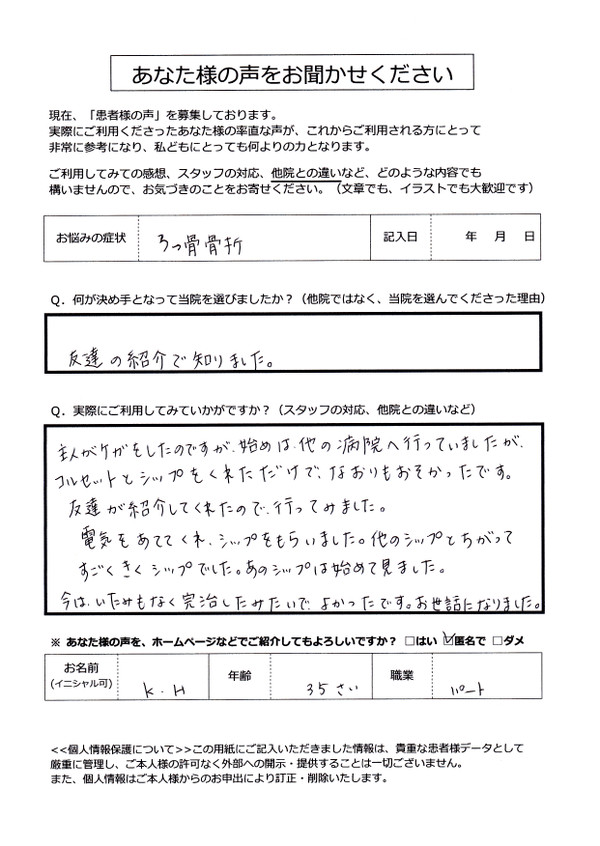 あなた様の声をお聞かせください
現在、「患者様の声」を募集しております。
実際にご利用くださったあなた様の率直な声が、これからご利用される方にとって
非常に参考になり、私どもにとっても何よりの力となります。
ご利用してみての感想、スタッフの対応、他院との違いなど、どのような内容でも
構いませんので、お気づきのことをお寄せください。（文章でも、イラストでも大歓迎です）
お悩みの症状 ろっ骨骨折 記入日 年 月 日
Q．何が決め手となって当院を選びましたか？（他院ではなく、当院を選んでくださった理由）
友達の紹介で知りました。
Q．実際にご利用してみていかがですか？（スタッフの対応、他院との違いなど）
主人がケガをしたのですが、始めは、他の病院へ行っていましたが、
コルセットとシップをくれただけで、なおりもおそかったです。
友達が紹介してくれたので、行ってみました。
電気をあててくれ、シップをもらいました。他のシップとちがって
すごくきくシップでした。あのシップは始めて見ました。
今は、いたみもなく完治したみたいで、よかったです。お世話になりました。
※ あなた様の声を、ホームページなどでご紹介してもよろしいですか？ □はい ☑匿名で □ダメ
お名前
(イニシャル可) K.H 年齢 35さい 職業 パート
<<個人情報保護について>>この用紙にご記入いただきました情報は、貴重な患者様データとして
厳重に管理し、ご本人様の許可なく外部への開示・提供することは一切ございません。
また、個人情報はご本人様からのお申出により訂正・削除いたします。